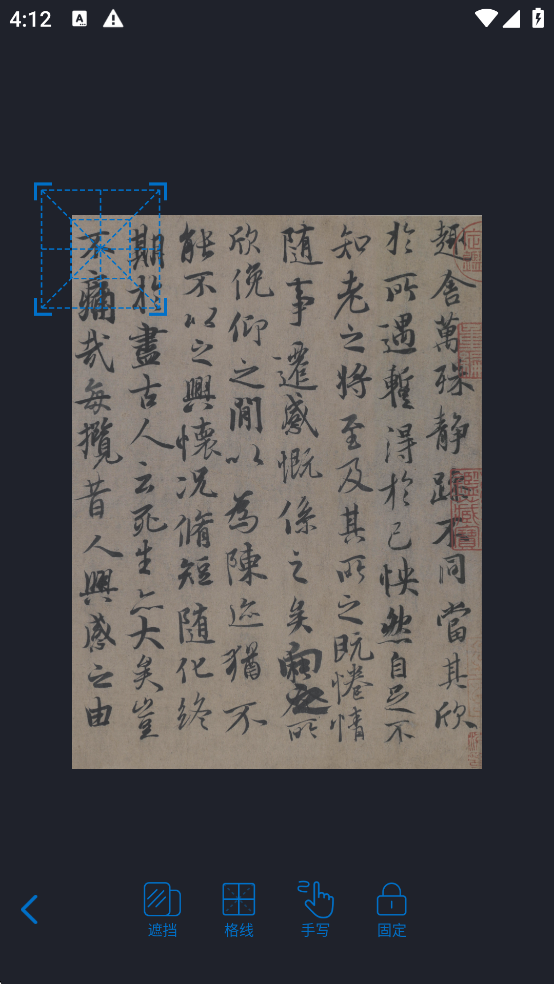 4:12
趣舍萬殊静躁不同當其欣
於所遇蹔得於己怏然自足不
知老之將至及其所之既惓情
隨事遷感慨係之矣向之所
欣俛仰之閒以為陳迹猶不
能不以之興懷况脩短隨化終
期於盡古人云死生亦大矣豈
不痛哉每攬昔人興感之由
遮挡 格线 手写 固定